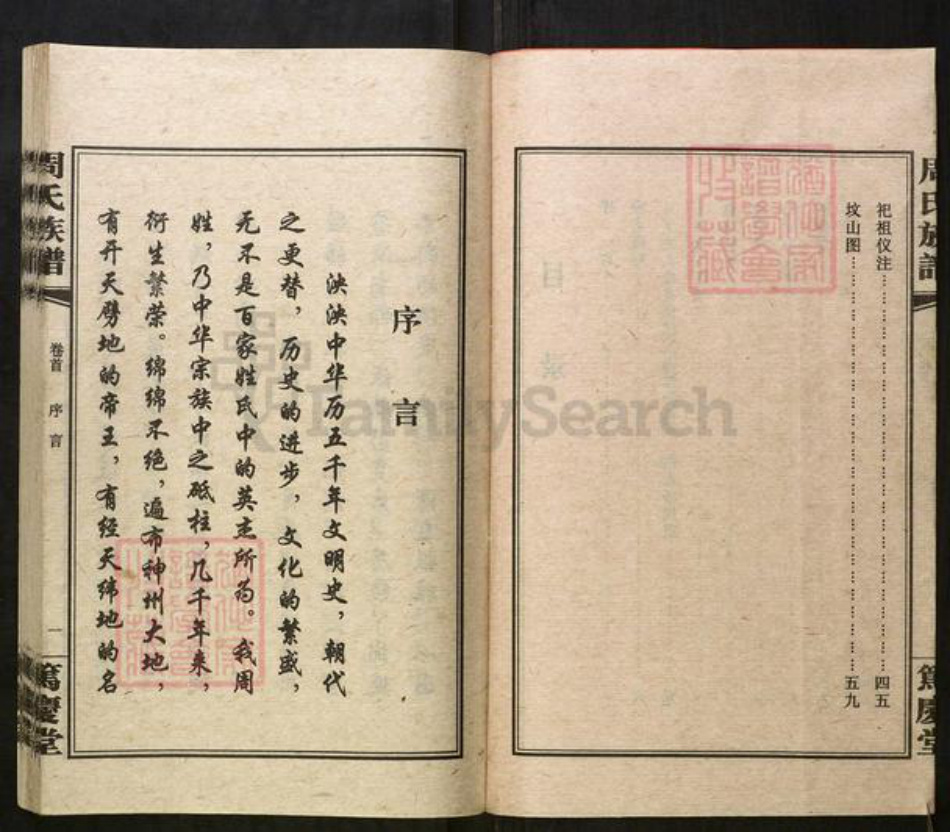 周氏族譜
祀祖仪注……四五
坟山图……五九
篤慶堂
序言
泱泱中华历五千年文明史，朝代
之更替，历史的进步，文化的繁盛，
无不是百家姓氏中的英杰所为。我周
姓，乃中华宗族中之砥柱，几千年来，
衍生繁荣。绵绵不绝，遍布神州大地，
有开天劈地的帝王，有经天纬地的名
周氏族譜
卷首 序言
一
篤慶堂
FamilySearch